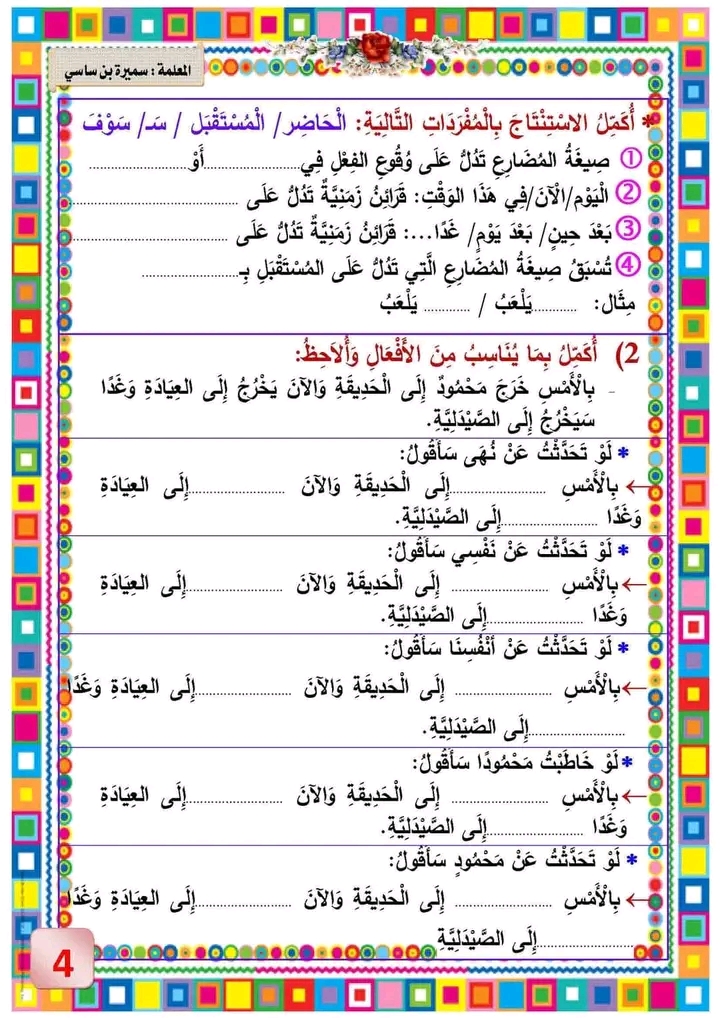 المعلمة : سميرة بن ساسي
* أُكَمِّلُ الاسْتِنْتَاجَ بِالْمُفْرَدَاتِ التَّالِيَةِ: الْحَاضِر/ الْمُسْتَقْبَل / سَـ/ سَوْفَ
① صِيغَةُ المُضَارِعِ تَدُلُّ عَلَى وُقُوعِ الفِعْلِ فِي....................أَوْ....................
② الْيَوْم/الْآنَ/فِي هَذَا الوَقْتِ: قَرَائِنُ زَمَنِيَّةٌ تَدُلُّ عَلَى ....................
③ بَعْدَ حِينٍ/ بَعْدَ يَوْمٍ/ غَدًا...: قَرَائِنُ زَمَنِيَّةٌ تَدُلُّ عَلَى ....................
④ تُسْبَقُ صِيغَةُ المُضَارِعِ الَّتِي تَدُلُّ عَلَى المُسْتَقْبَلِ بِـ....................
مِثَال: ..........يَلْعَبُ / .......... يَلْعَبُ
2) أُكَمِّلُ بِمَا يُنَاسِبُ مِنَ الأَفْعَالِ وَأُلاَحِظُ:
- بِالْأَمْسِ خَرَجَ مَحْمُودٌ إِلَى الْحَدِيقَةِ وَالآنَ يَخْرُجُ إِلَى العِيَادَةِ وَغَدًا
سَيَخْرُجُ إِلَى الصَّيْدَلِيَّةِ.
* لَوْ تَحَدَّثْتُ عَنْ نُهَى سَأَقُولُ:
← بِالْأَمْسِ ....................إِلَى الْحَدِيقَةِ وَالآنَ ....................إِلَى العِيَادَةِ
وَغَدًا ....................إِلَى الصَّيْدَلِيَّةِ.
* لَوْ تَحَدَّثْتُ عَنْ نَفْسِي سَأَقُولُ:
← بِالْأَمْسِ .................... إِلَى الْحَدِيقَةِ وَالآنَ ....................إِلَى العِيَادَةِ
وَغَدًا ....................إِلَى الصَّيْدَلِيَّةِ.
* لَوْ تَحَدَّثْتُ عَنْ أَنْفُسِنَا سَأَقُولُ:
← بِالْأَمْسِ .................... إِلَى الْحَدِيقَةِ وَالآنَ ....................إِلَى العِيَادَةِ وَغَدًا
....................إِلَى الصَّيْدَلِيَّةِ.
* لَوْ خَاطَبْتُ مَحْمُودًا سَأَقُولُ:
← بِالْأَمْسِ .................... إِلَى الْحَدِيقَةِ وَالآنَ ....................إِلَى العِيَادَةِ
وَغَدًا ....................إِلَى الصَّيْدَلِيَّةِ.
* لَوْ تَحَدَّثْتُ عَنْ مَحْمُودٍ سَأَقُولُ:
← بِالْأَمْسِ .................... إِلَى الْحَدِيقَةِ وَالآنَ ....................إِلَى العِيَادَةِ وَغَدًا
....................إِلَى الصَّيْدَلِيَّةِ
4